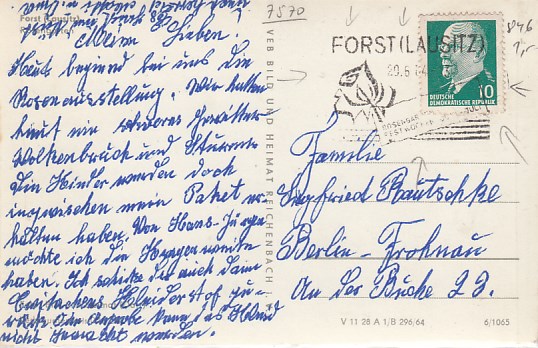 Forst (Lausitz)
Rosengarten
Meine Lieben.
Heute beginnt bei uns die
Rosenausstellung. Wir hatten
heut ein schweres Gewitter
Wolkenbruch und Sturm.
Die Kinder werden doch
inzwischen mein Paket er-
halten haben. Von Hans-Jürgen
möchte ich die Kragenweite
haben. Ich schicke dir auch dein
Kleiderstoff zu-
rück. Ohne Anprobe kann das Kleid
nicht gemacht werden.
VEB BILD UND HEIMAT REICHENBACH
7570
846
1,-
FORST (LAUSITZ)
29.6.64
ROSENGARTEN
FESTWOCHE
10
DEUTSCHE
DEMOKRATISCHE REPUBLIK
Familie
Siegfried Rautschke
Berlin-Frohnau
An der Buche 23.
V 11 28 A 1/B 296/64
6/1065